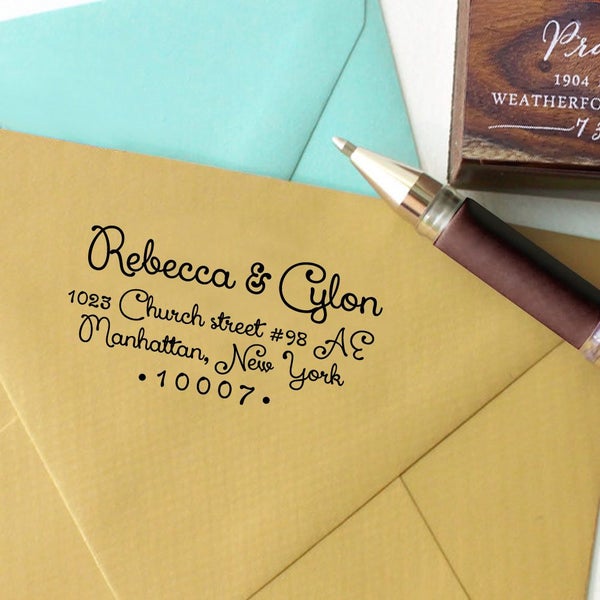 Rebecca & Cylon
1023 Church street #98 AE
Manhattan, New York
• 10007 •
1904